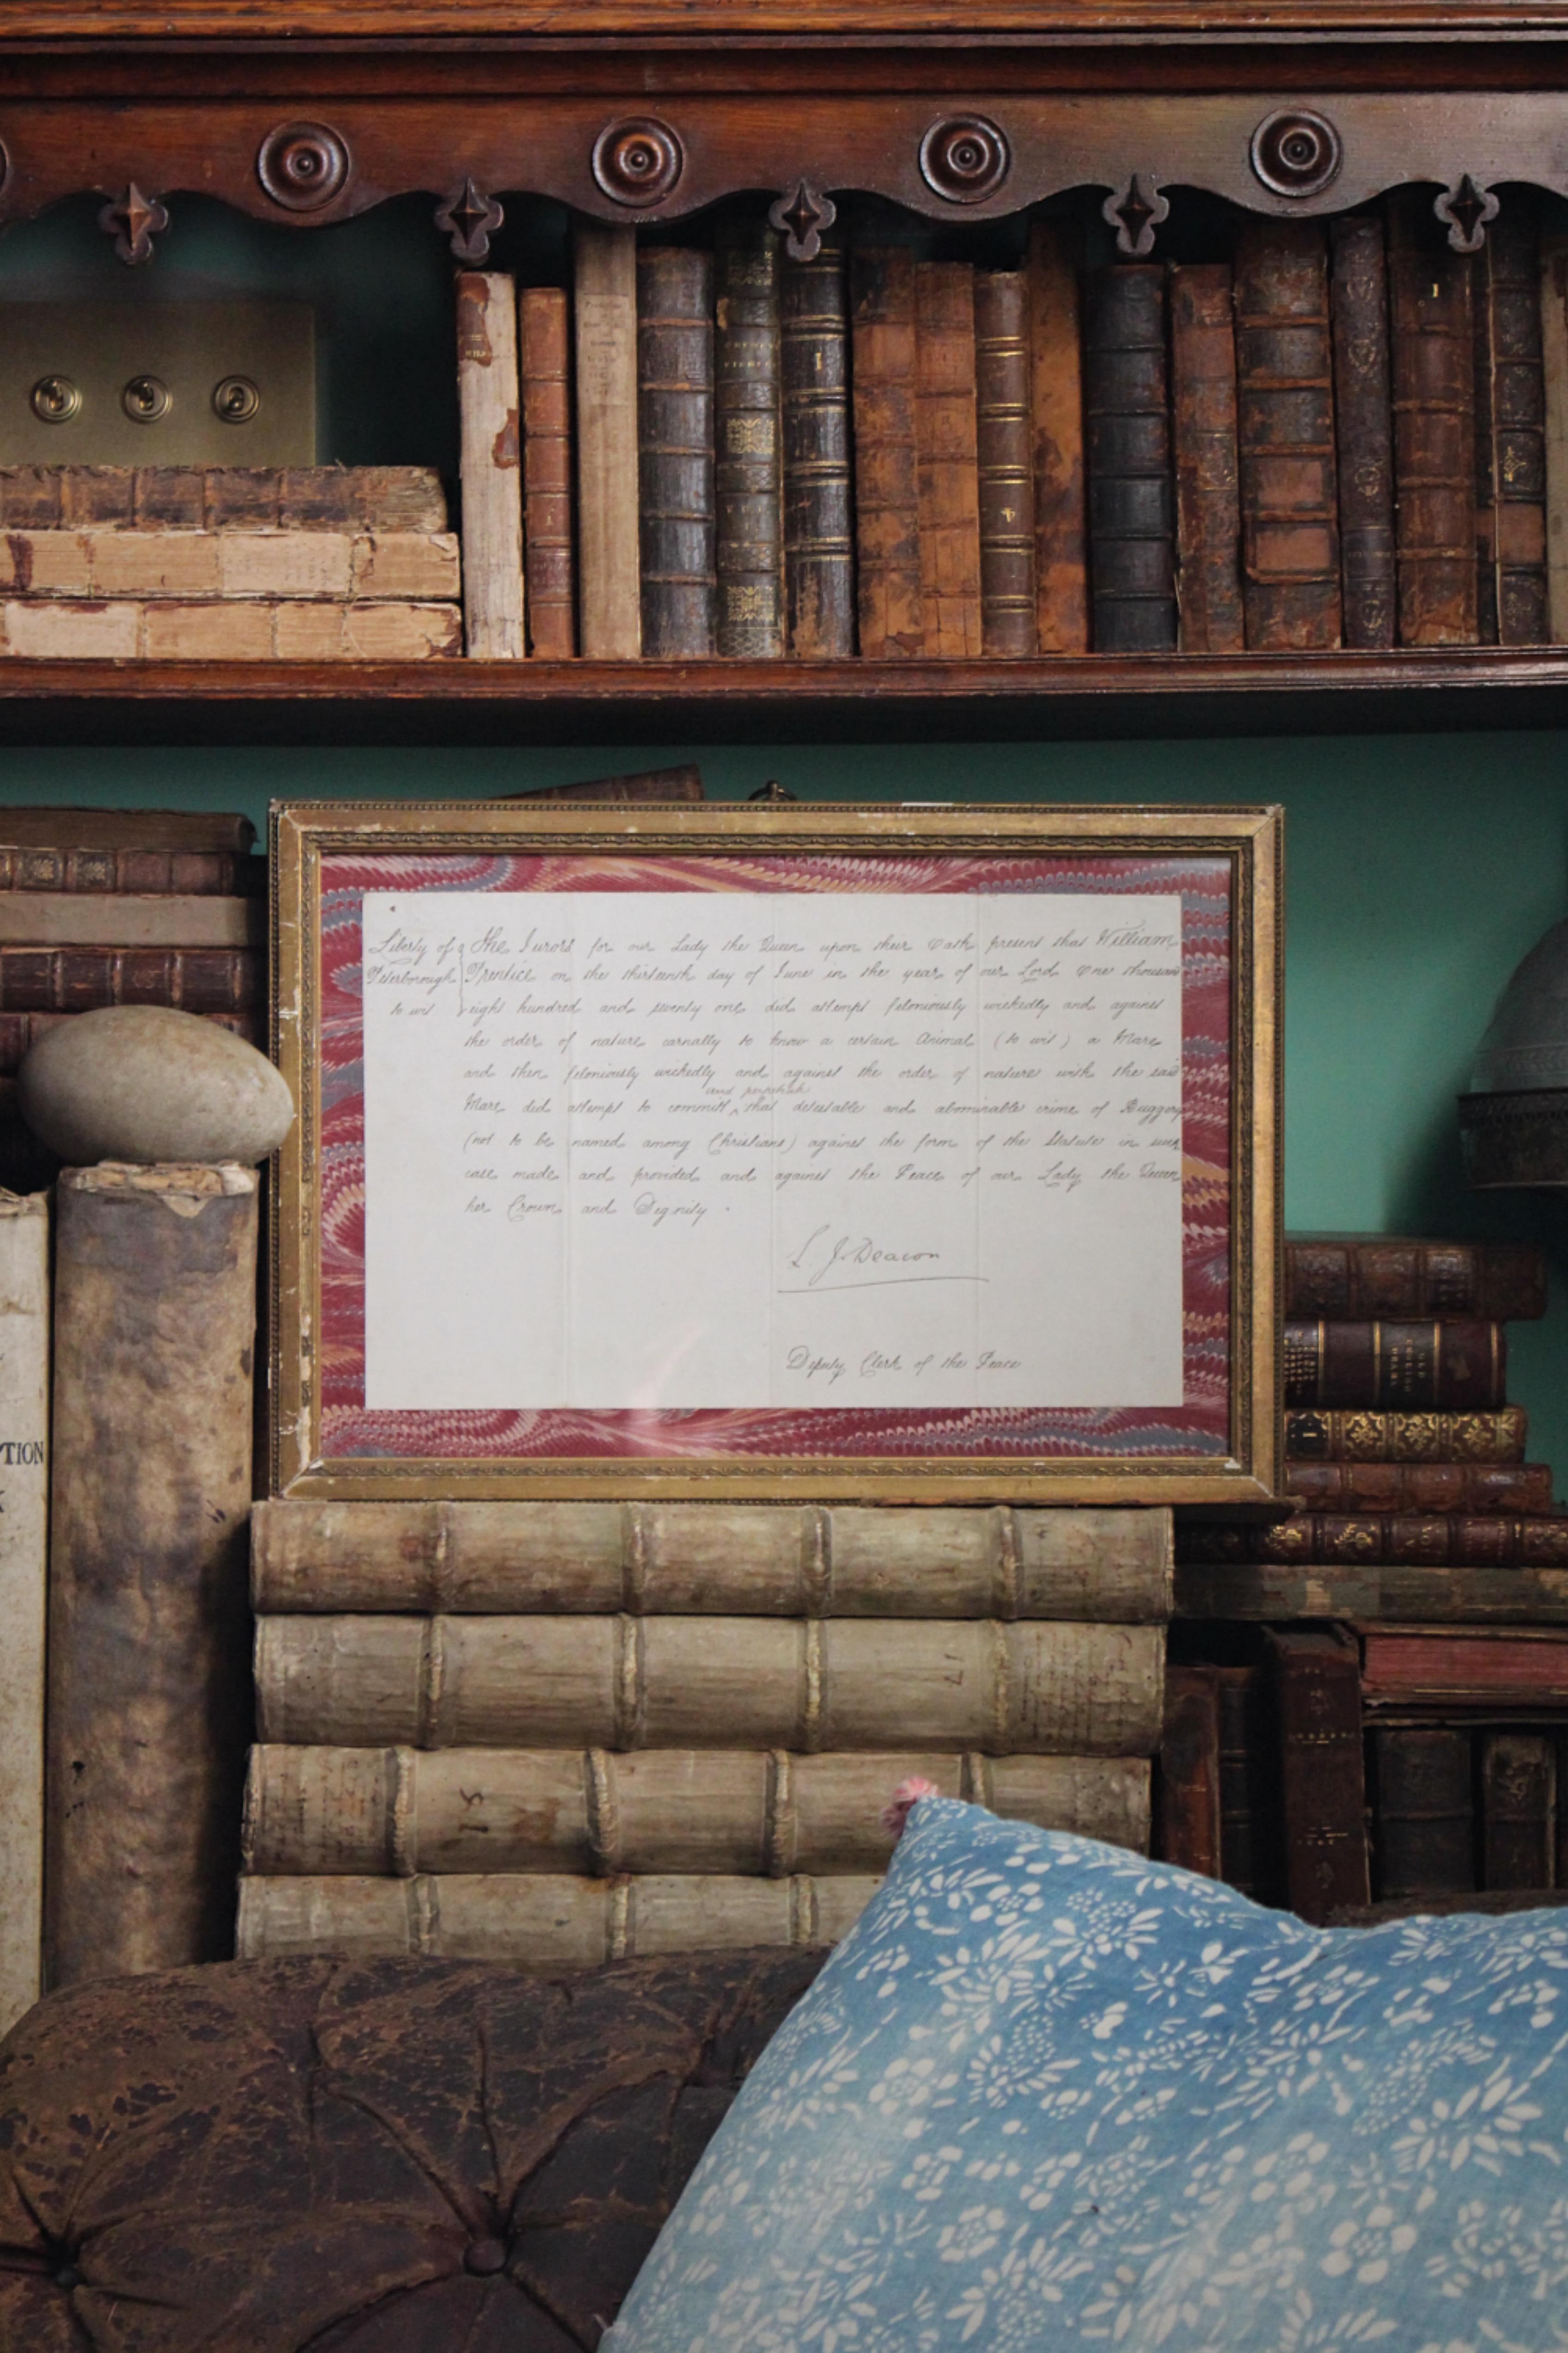 I
I
TION
Liberty of The Jurors for our Lady the Queen upon their Oath present that William
Peterborough Prentice on the thirteenth day of June in the year of our Lord One thousand
to wit eight hundred and seventy one did attempt feloniously wickedly and against
the order of nature carnally to know a certain Animal (to wit) a Mare
and then feloniously wickedly and against the order of nature with the said
and perpetrate
Mare did attempt to committ that detestable and abominable crime of Buggery
(not to be named among Christians) against the form of the Statute in such
case made and provided and against the Peace of our Lady the Queen
her Crown and Dignity .
L. J. Deacon
Deputy Clerk of the Peace
OLD
ENGLISH
DRAMA
I
17
15